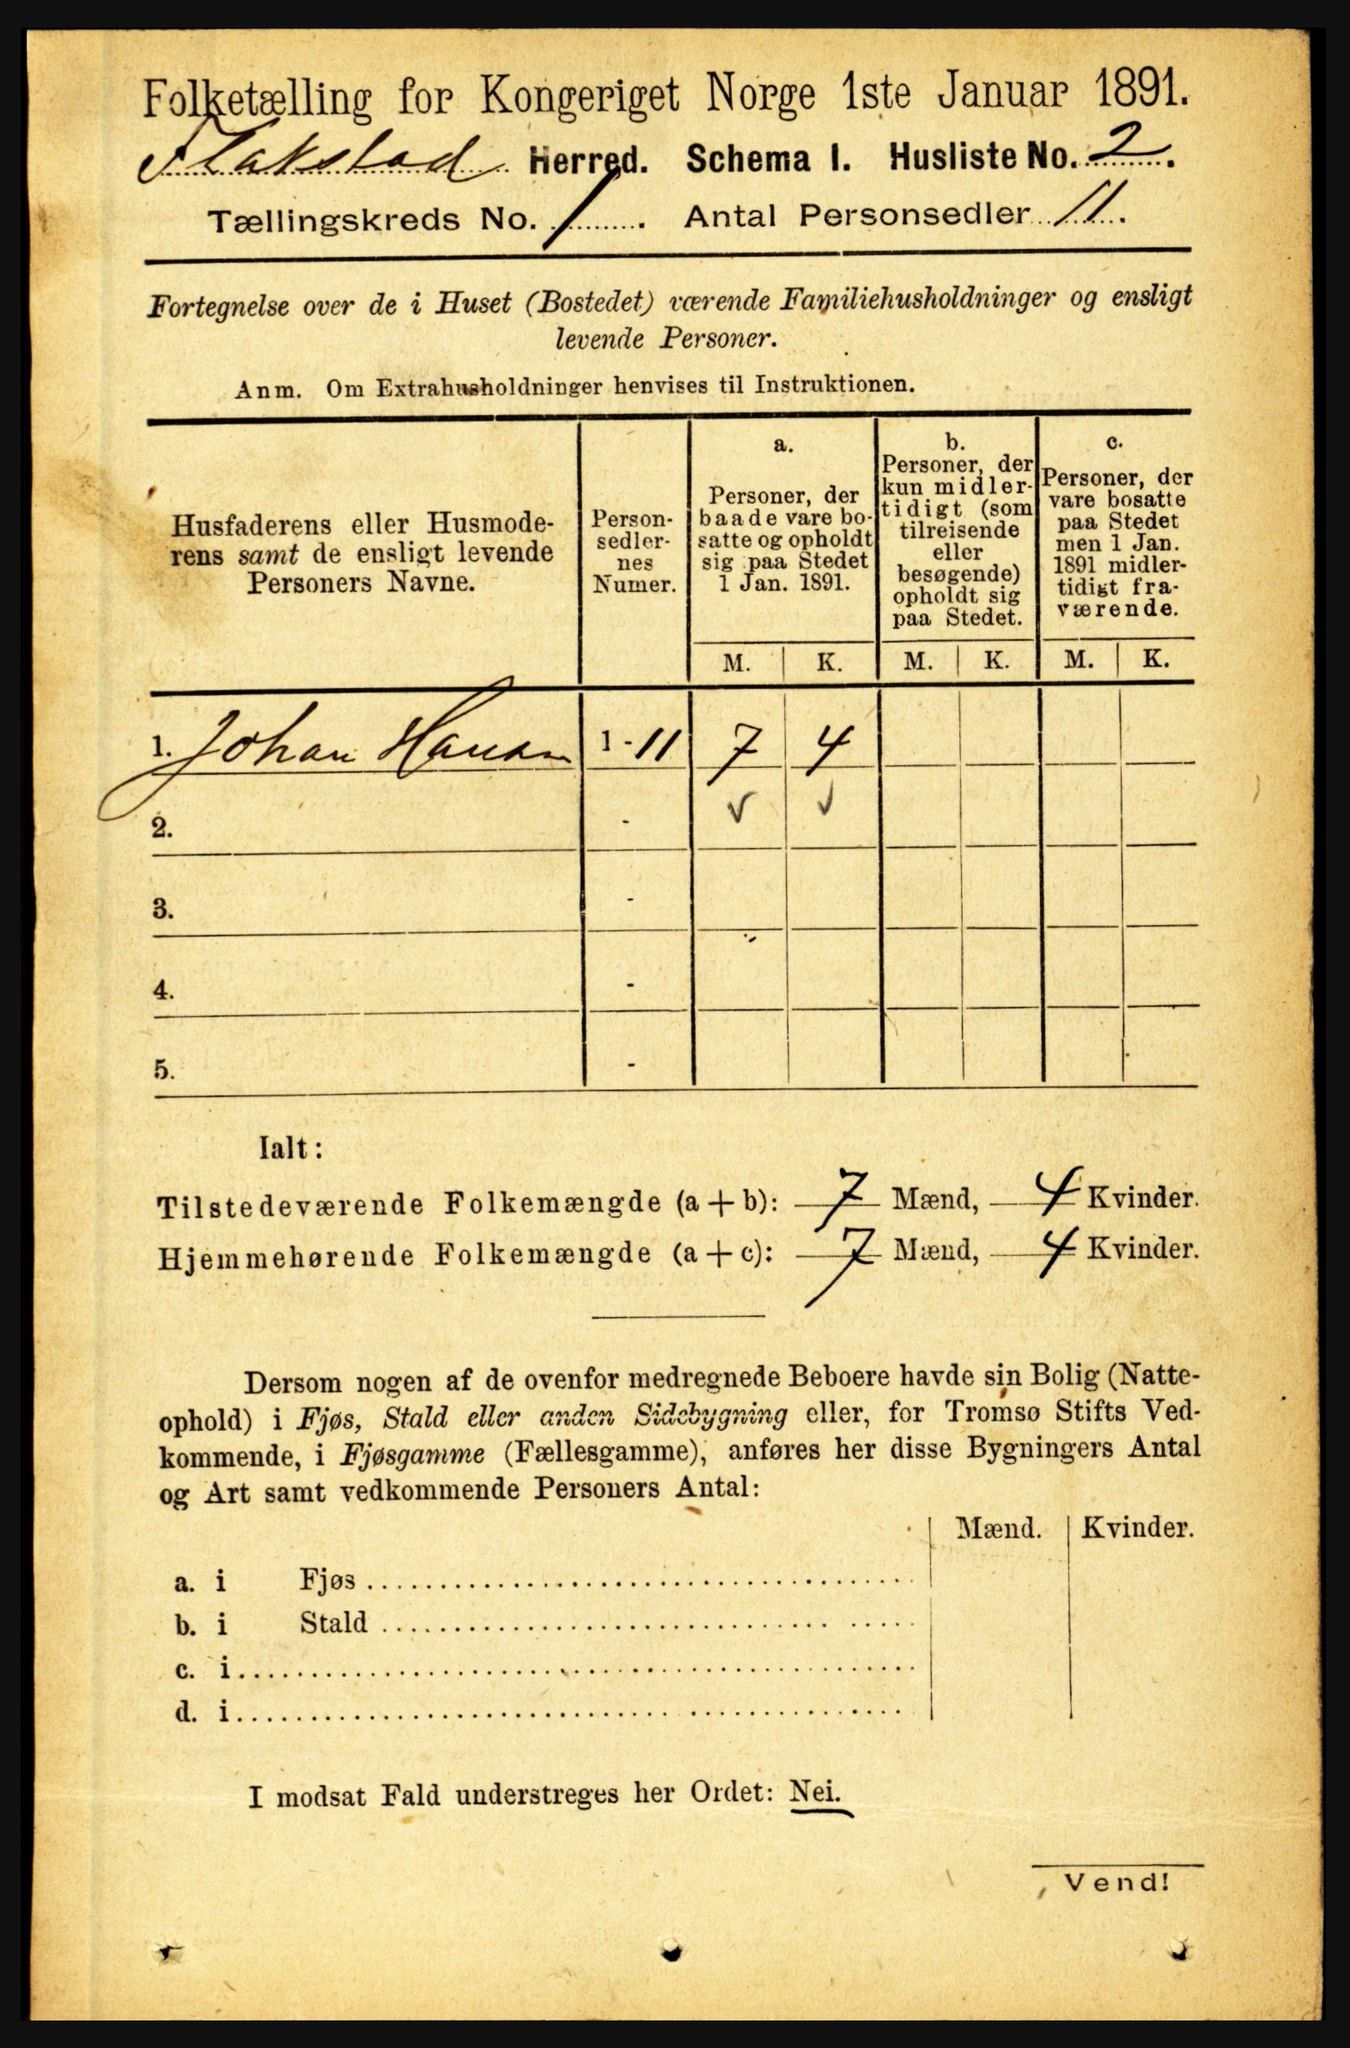 Folketælling for Kongeriget Norge 1ste Januar 1891.
Flakstad Herred. Schema I. Husliste No. 2.
Tællingskreds No. 1. Antal Personsedler 11.
Fortegnelse over de i Huset (Bostedet) værende Familiehusholdninger og ensligt
levende Personer.
Anm. Om Extrahusholdninger henvises til Instruktionen.
Husfaderens eller Husmode-
rens samt de ensligt levende
Personers Navne.
Person-
sedler-
nes
Numer.
a.
Personer, der
baade vare bo-
satte og opholdt
sig paa Stedet
1 Jan. 1891.
b.
Personer, der
kun midler-
tidigt (som
tilreisende
eller
besøgende)
opholdt sig
paa Stedet.
c.
Personer, der
vare bosatte
paa Stedet
men 1 Jan.
1891 midler-
tidigt fra-
værende.
M. K. M. K. M. K.
1. Johan Hansen 1 - 11 7 4
2. - √ √
3. -
4. -
5. -
Ialt:
Tilstedeværende Folkemængde (a + b): 7 Mænd, 4 Kvinder.
Hjemmehørende Folkemængde (a + c): 7 Mænd, 4 Kvinder.
Dersom nogen af de ovenfor medregnede Beboere havde sin Bolig (Natte-
ophold) i Fjøs, Stald eller anden Sidebygning eller, for Tromsø Stifts Ved-
kommende, i Fjøsgamme (Fællesgamme), anføres her disse Bygningers Antal
og Art samt vedkommende Personers Antal:
Mænd. Kvinder.
a. i Fjøs
b. i Stald
c. i
d. i
I modsat Fald understreges her Ordet: Nei.
Vend!